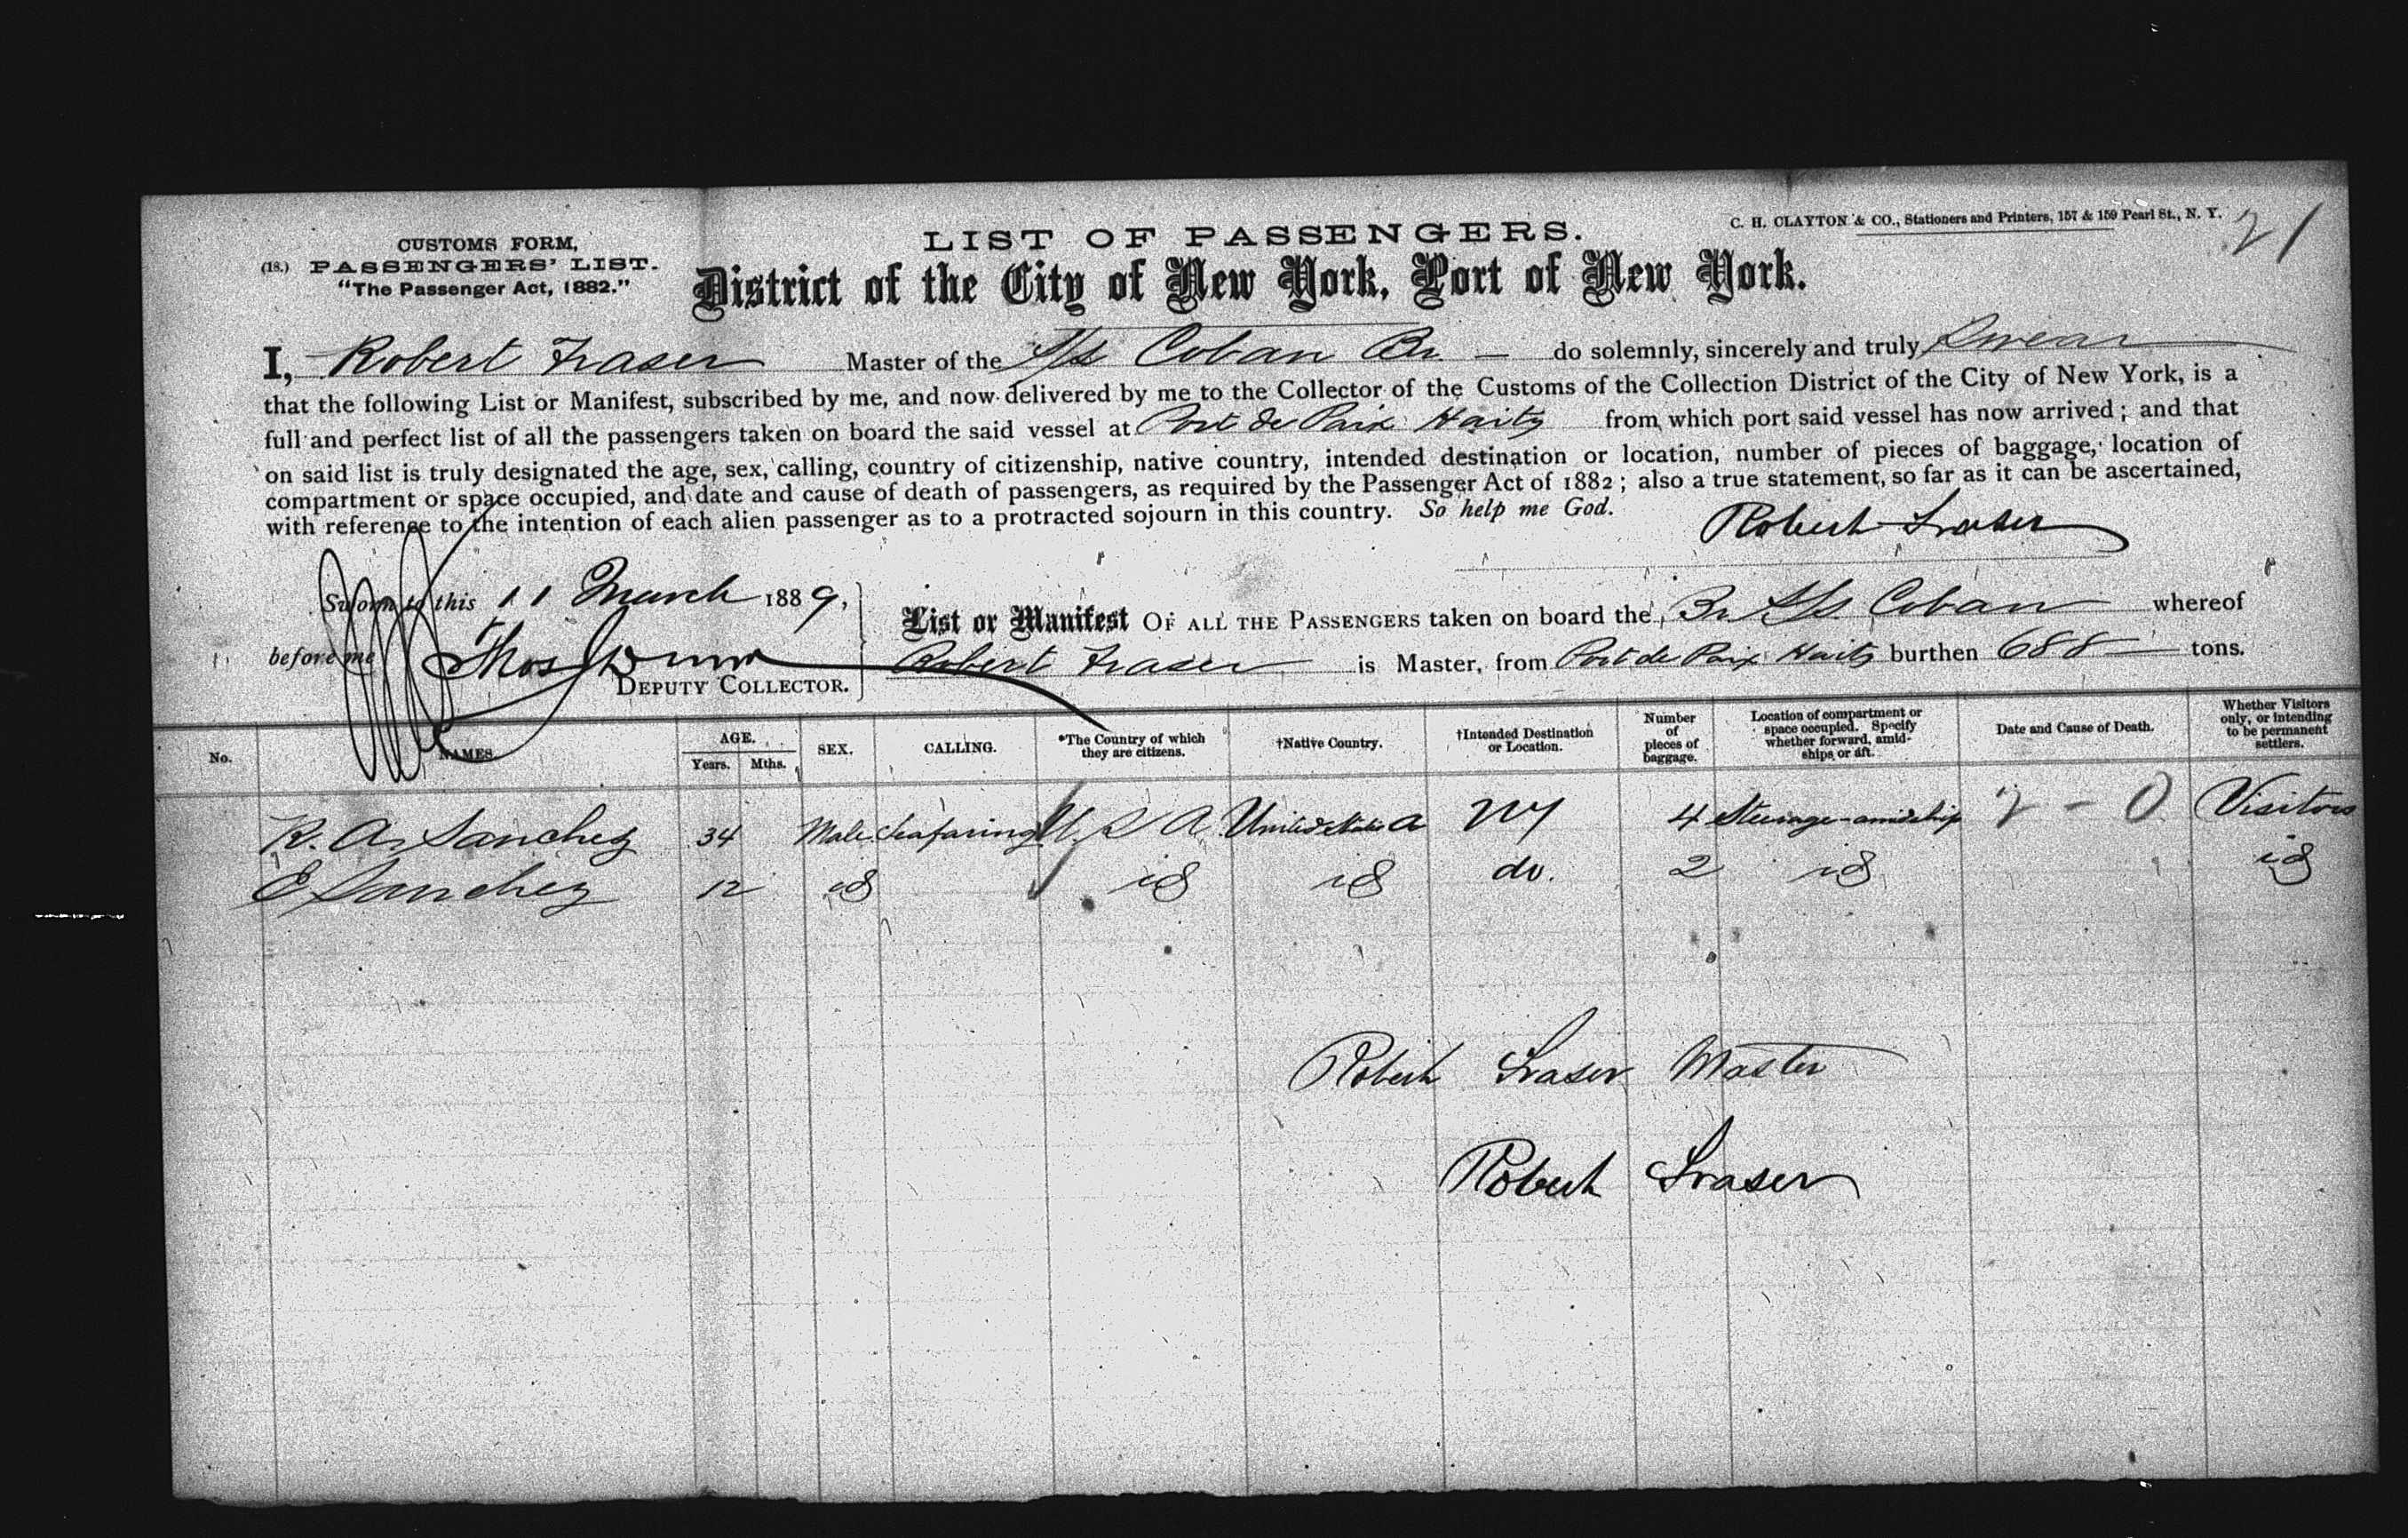 C. H. CLAYTON & CO., Stationers and Printers, 157 & 159 Pearl St., N. Y.
21
CUSTOMS FORM,
(18.) PASSENGERS' LIST.
"The Passenger Act, 1882."
LIST OF PASSENGERS.
District of the City of New York, Port of New York.
I, Robert Fraser Master of the S/s Coban Br. — do solemnly, sincerely and truly Swear
that the following List or Manifest, subscribed by me, and now delivered by me to the Collector of the Customs of the Collection District of the City of New York, is a
full and perfect list of all the passengers taken on board the said vessel at Port de Paix Haity from which port said vessel has now arrived; and that
on said list is truly designated the age, sex, calling, country of citizenship, native country, intended destination or location, number of pieces of baggage, location of
compartment or space occupied, and date and cause of death of passengers, as required by the Passenger Act of 1882; also a true statement, so far as it can be ascertained,
with reference to the intention of each alien passenger as to a protracted sojourn in this country. So help me God.
Robert Fraser
Sworn to this 11 March 1889,
before me Thos
DEPUTY COLLECTOR.
List or Manifest OF ALL THE PASSENGERS taken on board the Br S/s Coban whereof
Robert Fraser is Master, from Port de Paix Haity burthen 688 — tons.
No.
NAMES
AGE.
Years. Mths.
SEX.
CALLING.
*The Country of which they are citizens.
†Native Country.
†Intended Destination or Location.
Number of pieces of baggage.
Location of compartment or space occupied. Specify whether forward, amidships or aft.
Date and Cause of Death.
Whether Visitors only, or intending to be permanent settlers.
R. A. Sanchez 34 Male Seafaring U. S. A. United States A NY 4 Steerage-amidship 2 - 0 Visitors
E Sanchez 12 id id id do. 2 id id
Robert Fraser Master
Robert Fraser